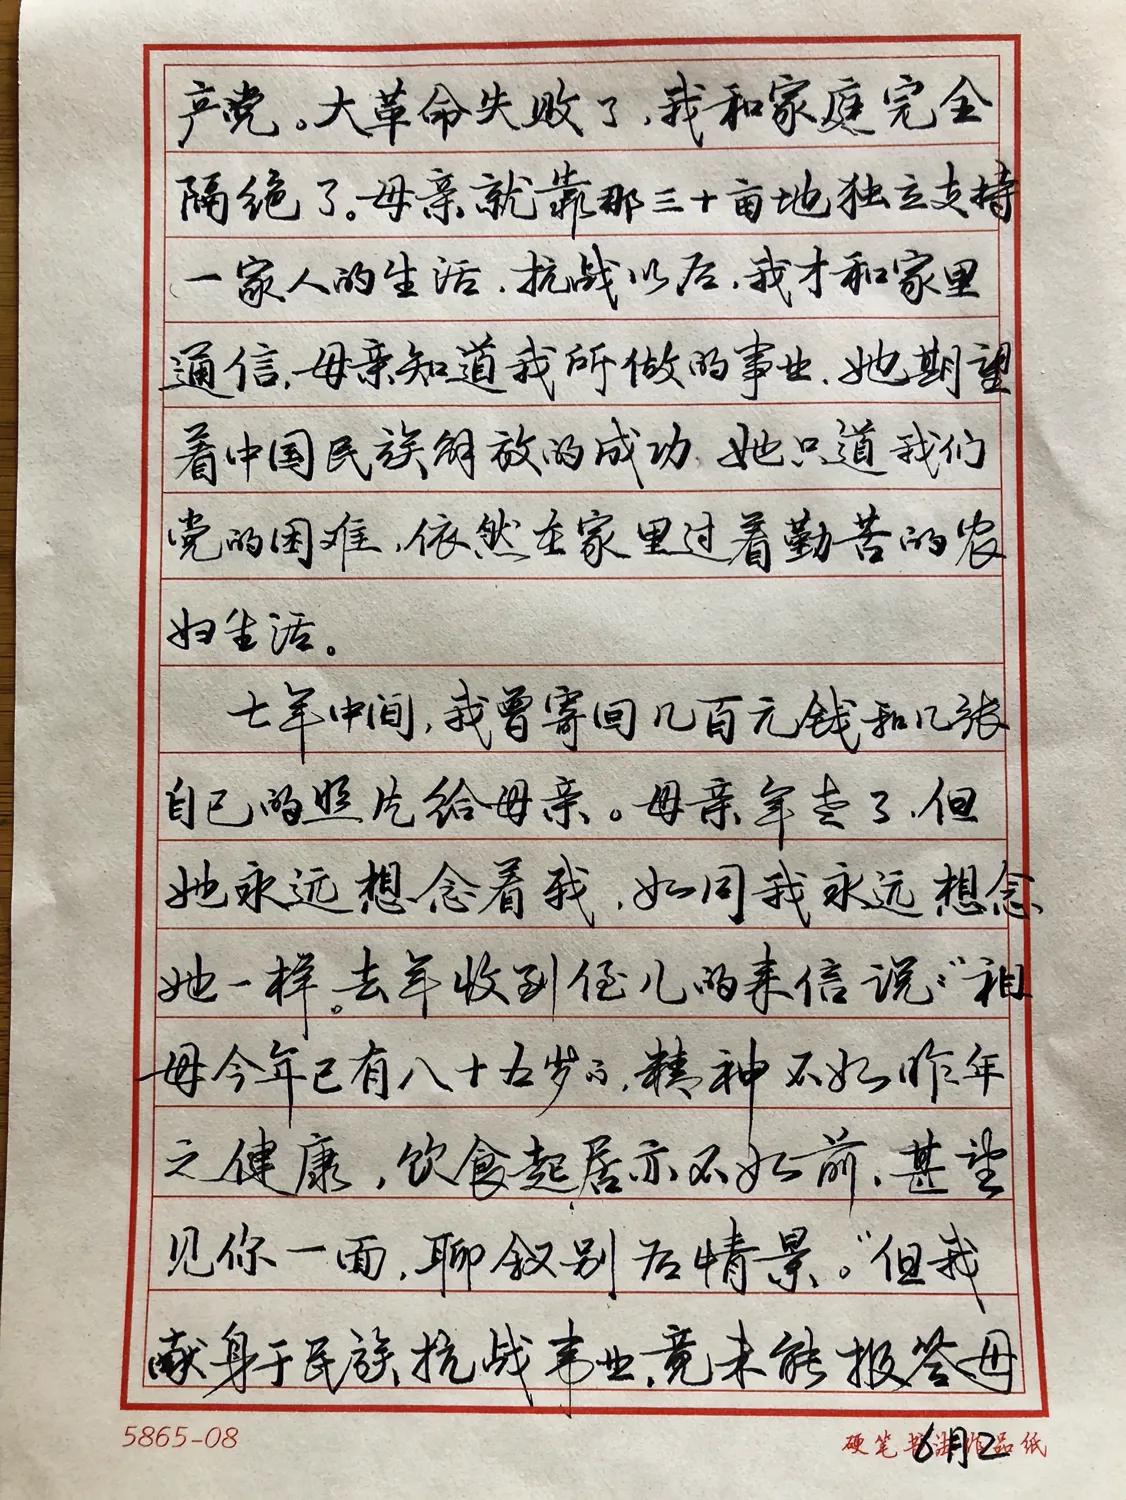 产党。大革命失败了，我和家庭完全
隔绝了。母亲就靠那三十亩地独立支持
一家人的生活。抗战以后，我才和家里
通信，母亲知道我所做的事业，她期望
着中国民族解放的成功。她只道我们
党的困难，依然在家里过着勤苦的农
妇生活。
七年中间，我曾寄回几百元钱和几张
自己的照片给母亲。母亲年老了，但
她永远想念着我，如同我永远想念
她一样。去年收到侄儿的来信说：“祖
母今年已有八十五岁了，精神不如昨年
之健康，饮食起居亦不如前，甚望
见你一面，聊叙别后情景。”但我
献身于民族抗战事业，竟未能报答母
5865-08
硬笔书法作品纸
6月2